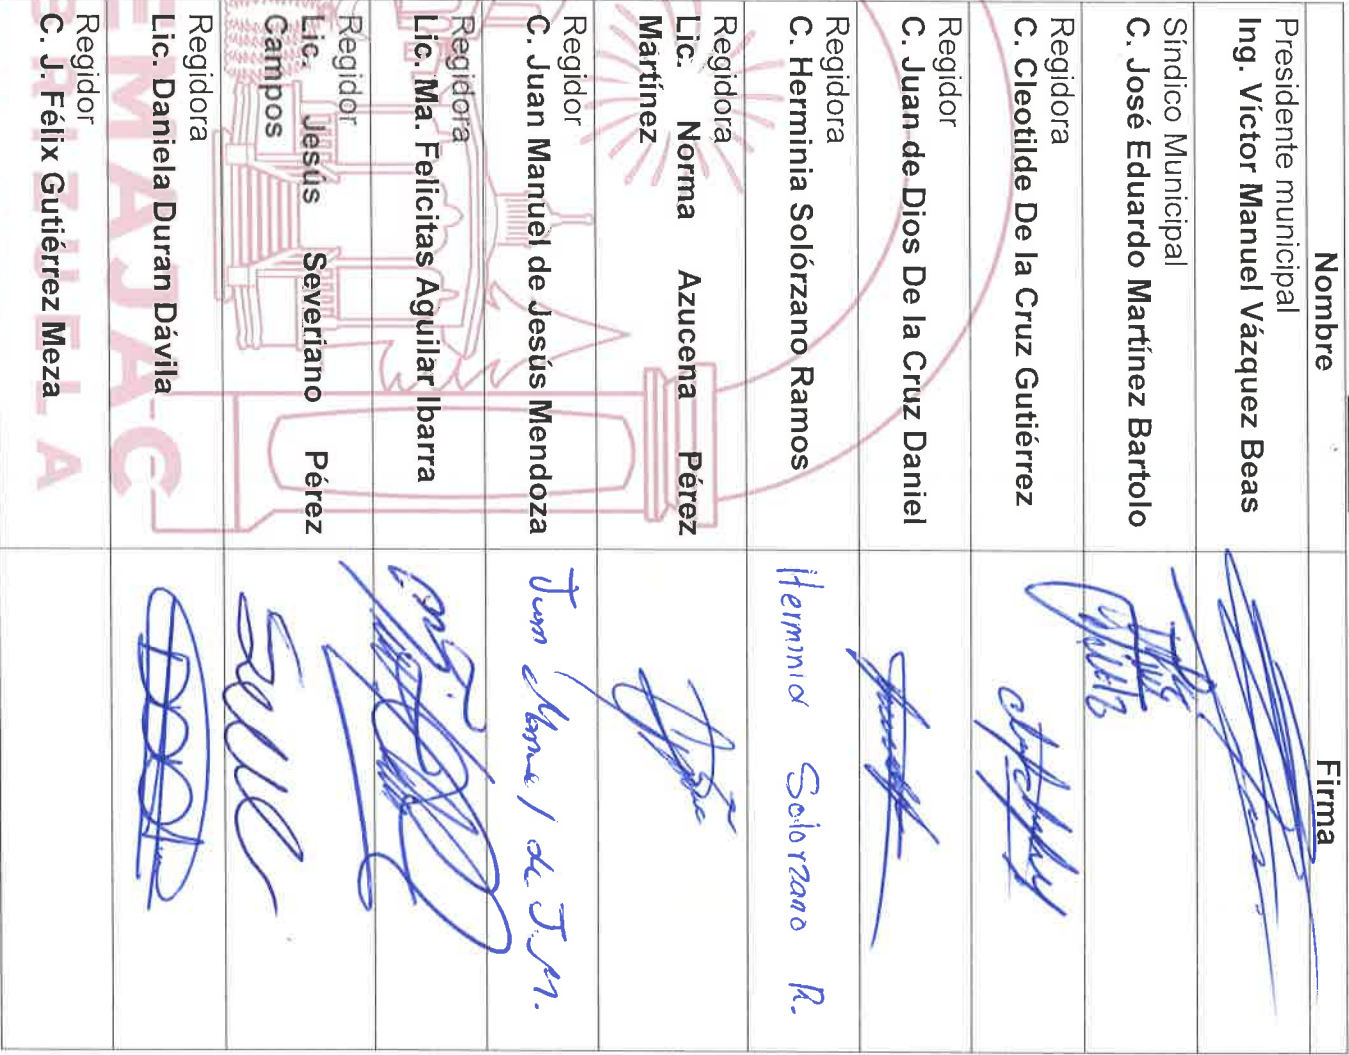 Nombre
Firma
Presidente municipal
Ing. Víctor Manuel Vázquez Beas
Síndico Municipal
C. José Eduardo Martínez Bartolo
Regidora
C. Cleotilde De la Cruz Gutiérrez
Regidor
C. Juan de Dios De la Cruz Daniel
Regidora
C. Herminia Solórzano Ramos
Herminia Solorzano R.
Regidora
Lic. Norma Azucena Pérez
Martínez
Regidor
C. Juan Manuel de Jesús Mendoza
Juan Manuel de J. M.
Regidora
Lic. Ma. Felicitas Aguilar Ibarra
Regidor
Lic. Jesús Severiano Pérez
Campos
Regidora
Lic. Daniela Duran Dávila
Regidor
C. J. Félix Gutiérrez Meza
EMAJAC
BRIZUELA